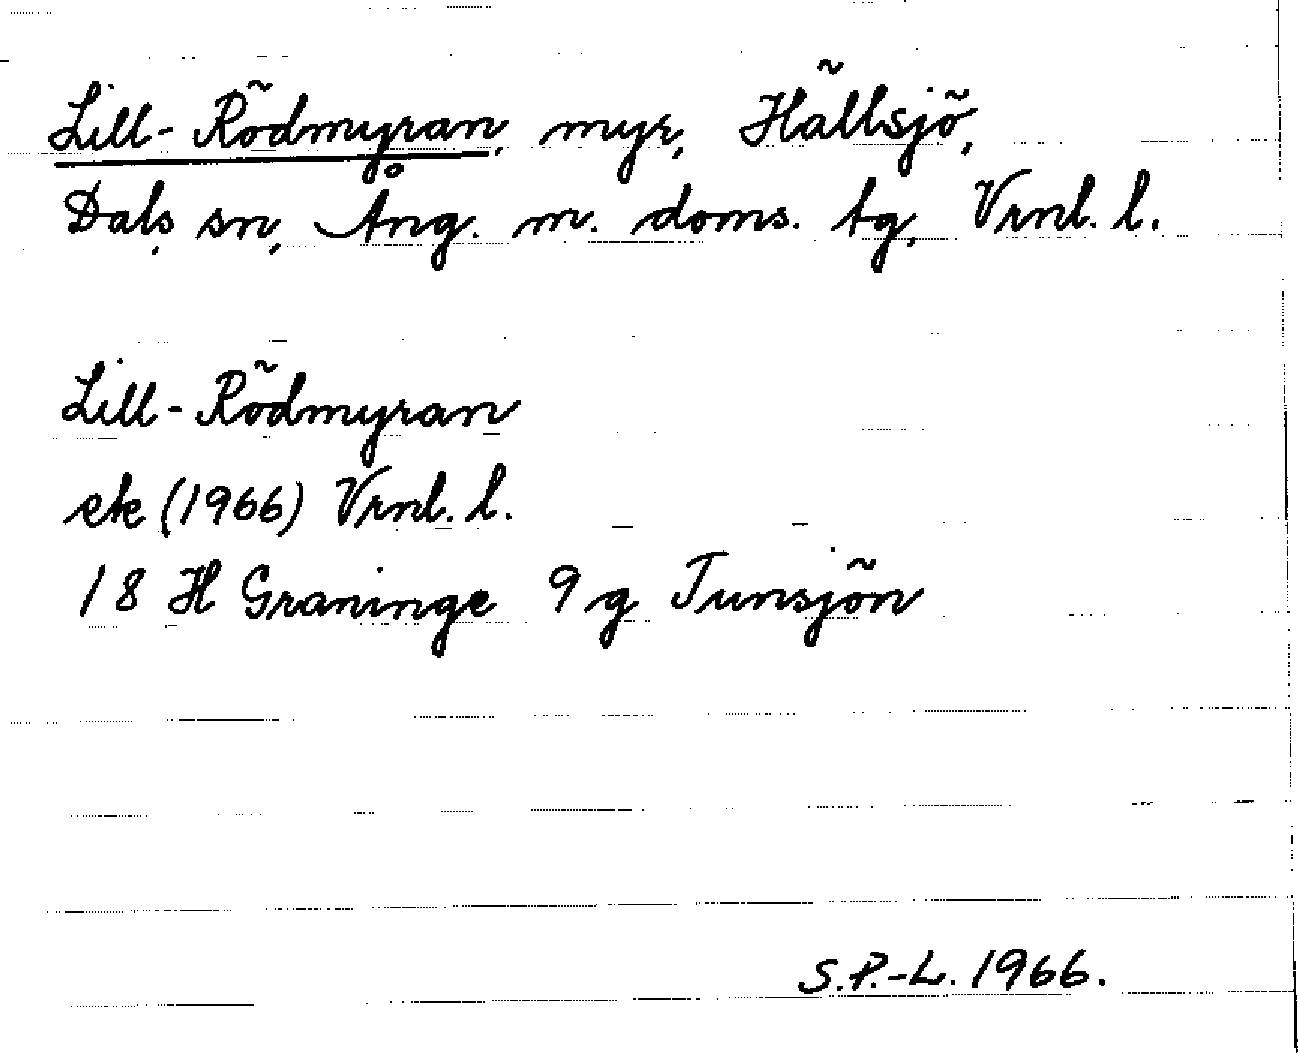 Lill-Rödmyran, myr, Hällsjö,
Dals sn, Ång. m. doms. tg, Vrnl. l.
Lill-Rödmyran
ek (1966) Vrnl. l.
18 H Graninge 9 g Tunsjön
S.P.-L. 1966.